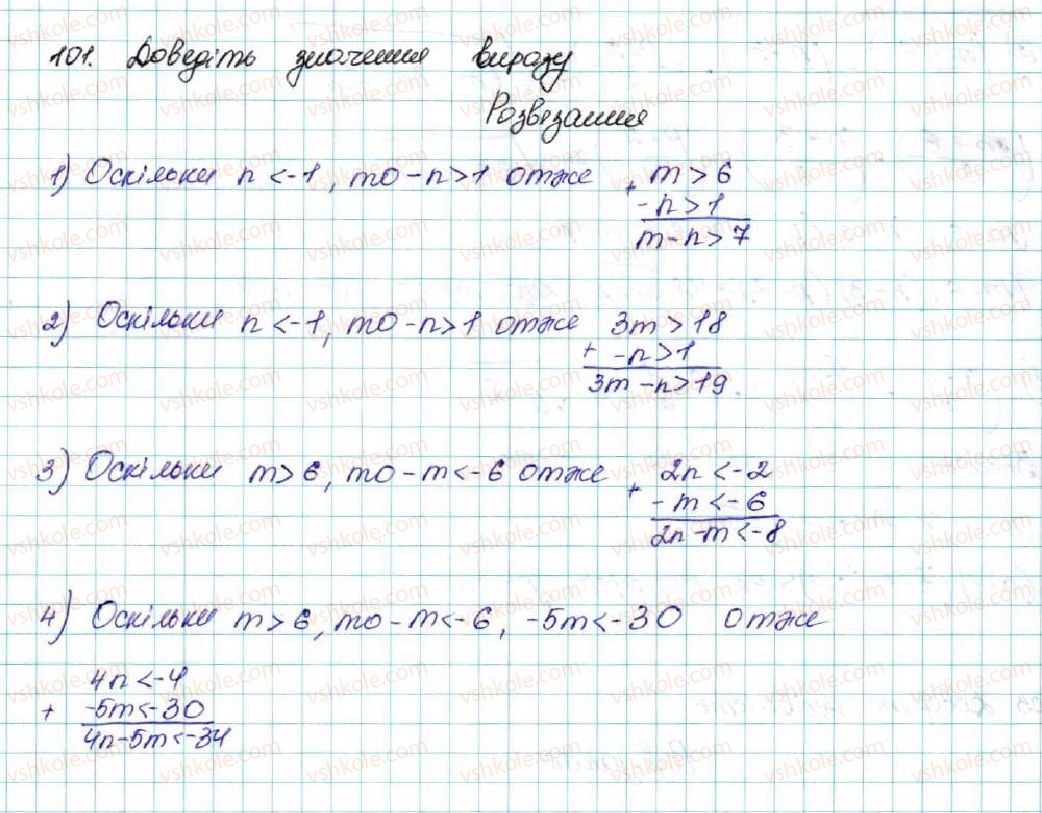 101. Доведіть значення виразу
Розвязання
1) Оскільки n < -1, то -n > 1 отже + m > 6
- n > 1
m - n > 7
2) Оскільки n < -1, то -n > 1 отже 3m > 18
+ -n > 1
3m - n > 19
3) Оскільки m > 6, то -m < -6 отже + 2n < -2
- m < -6
2n - m < -8
4) Оскільки m > 6, то -m < -6, -5m < -30 отже
4n < -4
+ -5m < -30
4n - 5m < -34